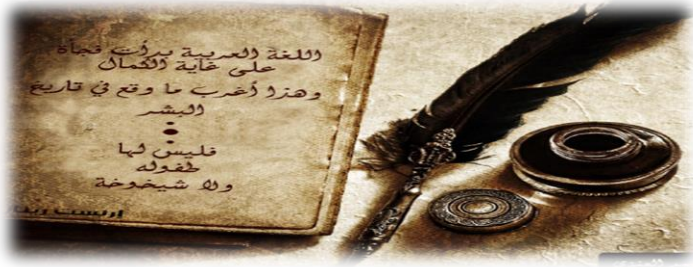 اللغة العربية بدأت فجأة
على غاية الكمال
وهذا أغرب ما وقع في تاريخ
البشر
فليس لها
طفوله
ولا شيخوخة
ارنست